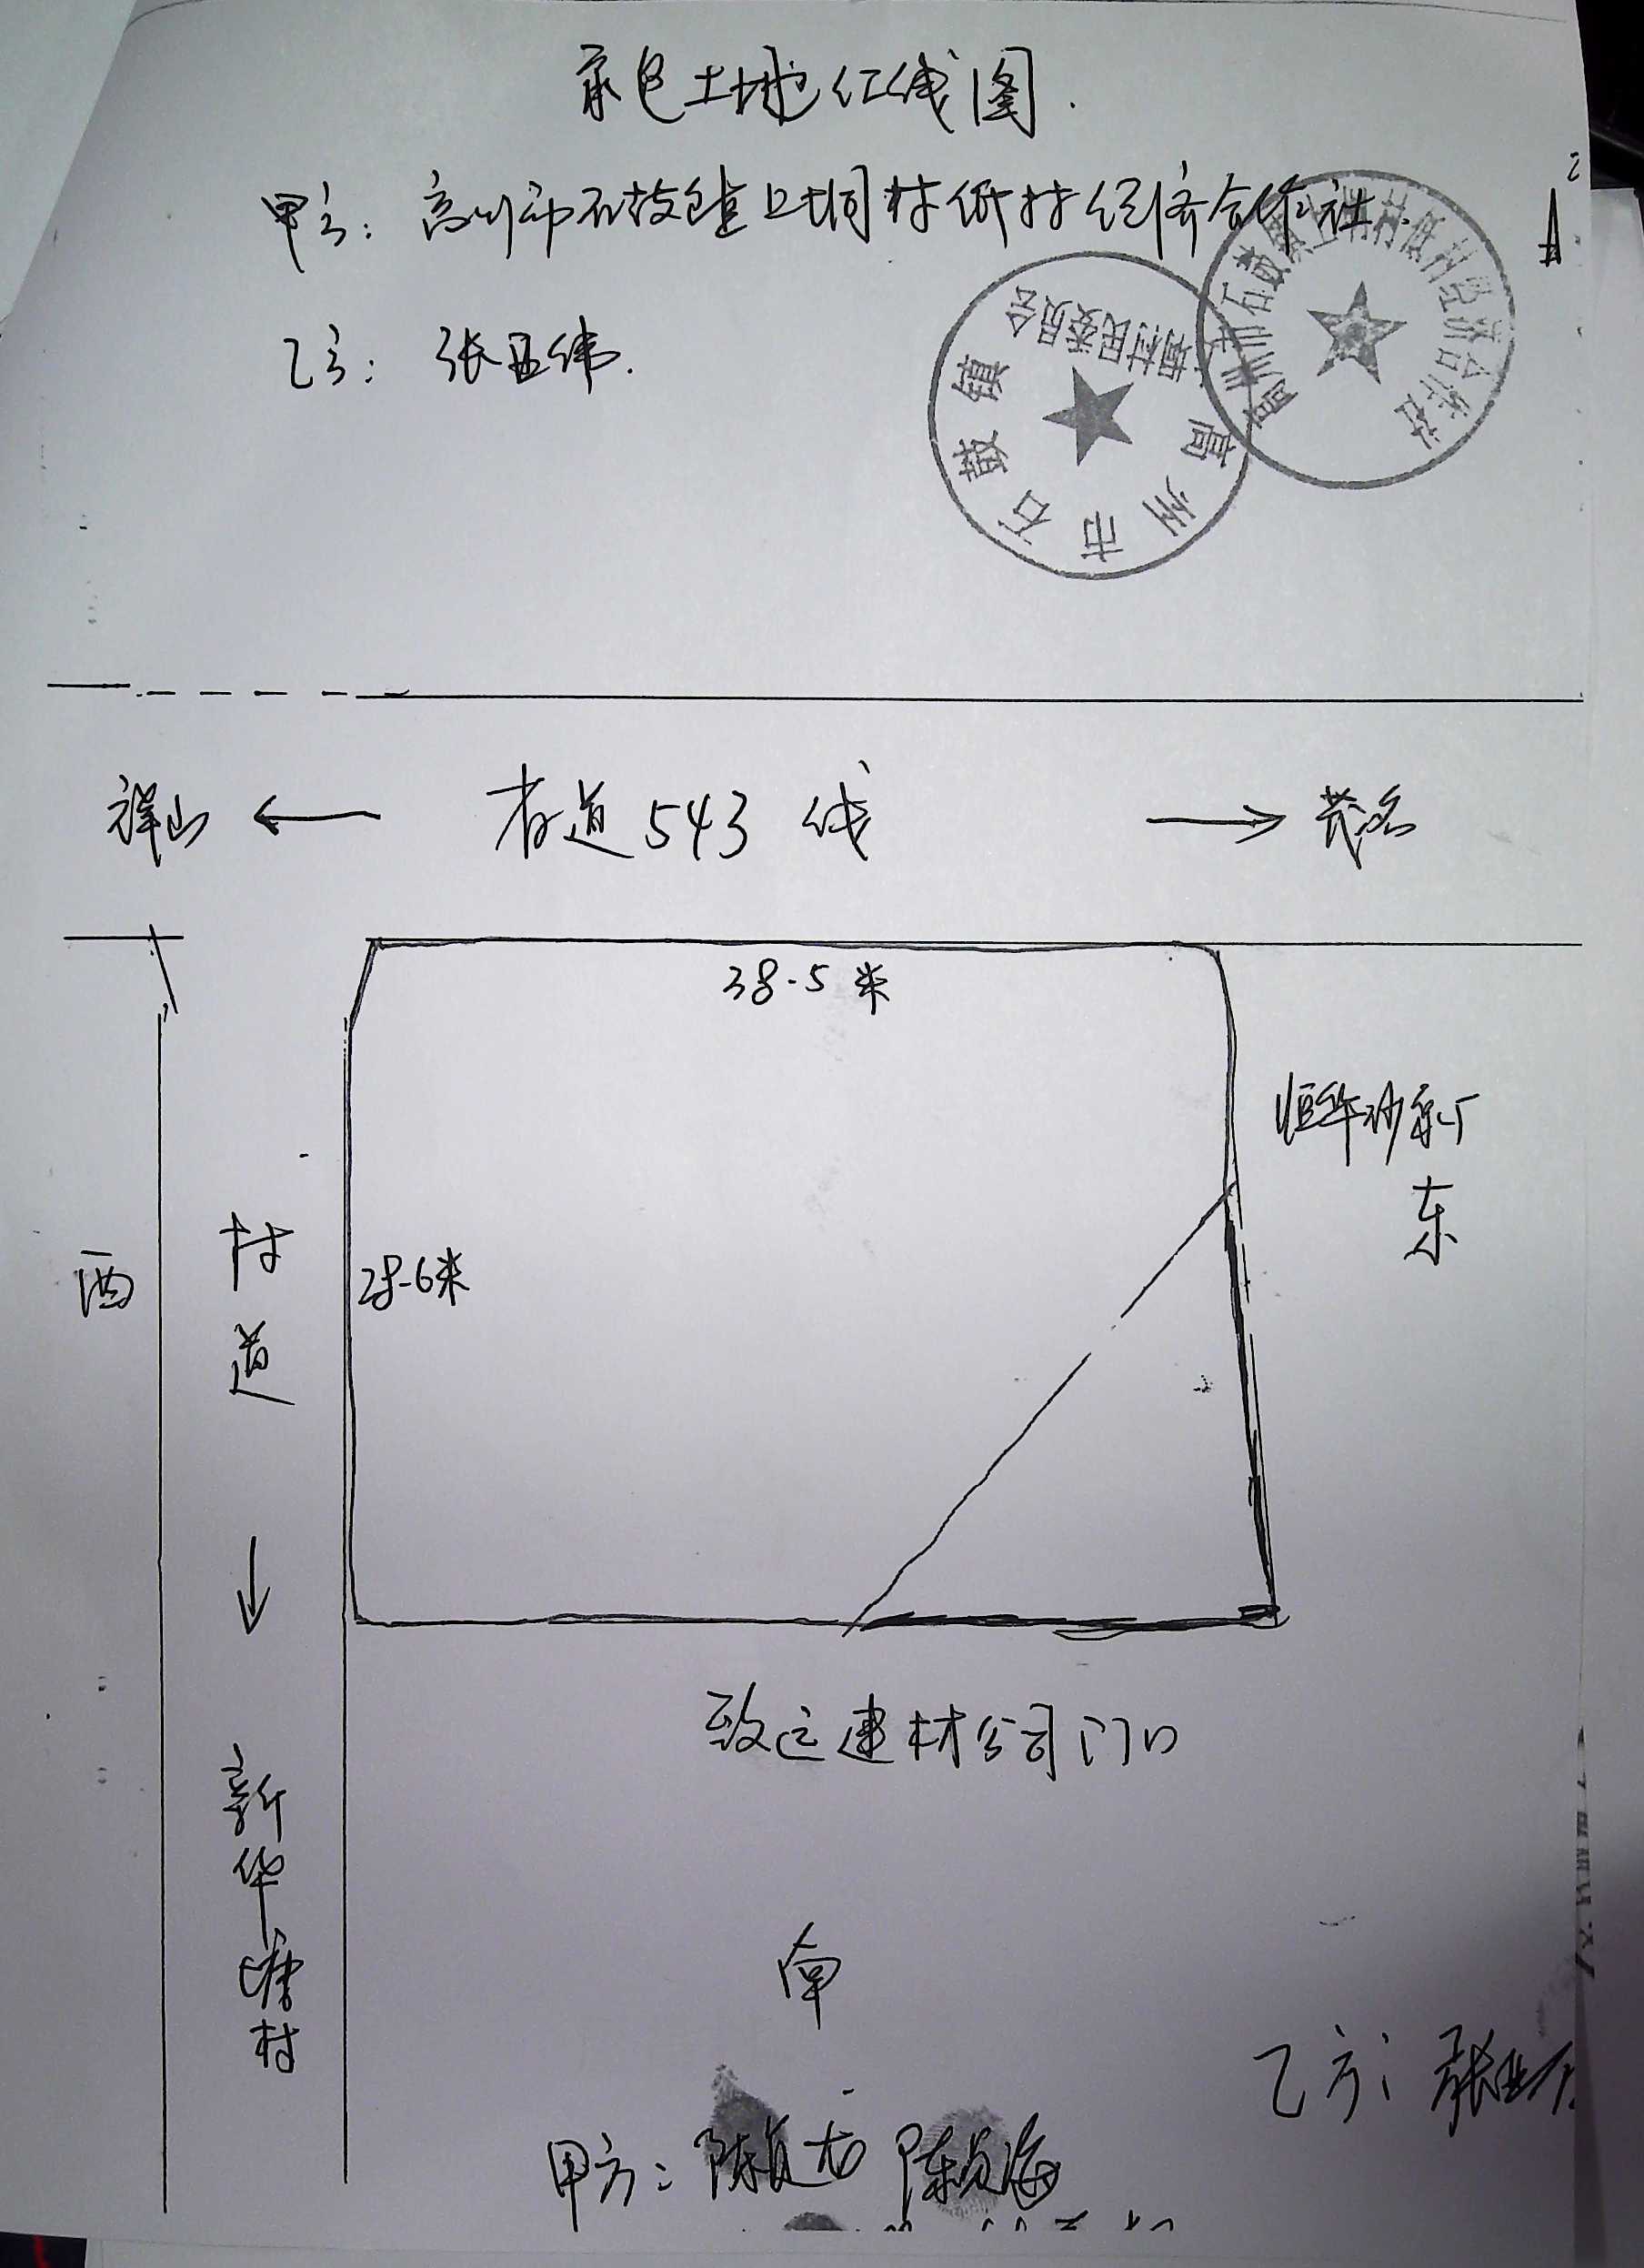 承包土地红线图.
甲方: 高州市石鼓镇上垌村低村经济合作社.
乙方: 张亚伟.
高州市石鼓镇上垌村低村经济合作社
高州市石鼓镇 垌村民委员会
祥山 ← 省道543线 → 茂名
38.5米
恒华沙场
东
西
村道
28.6米
↓
致运建材公司门口
新华塘村
南
乙方: 张亚
甲方: 陈